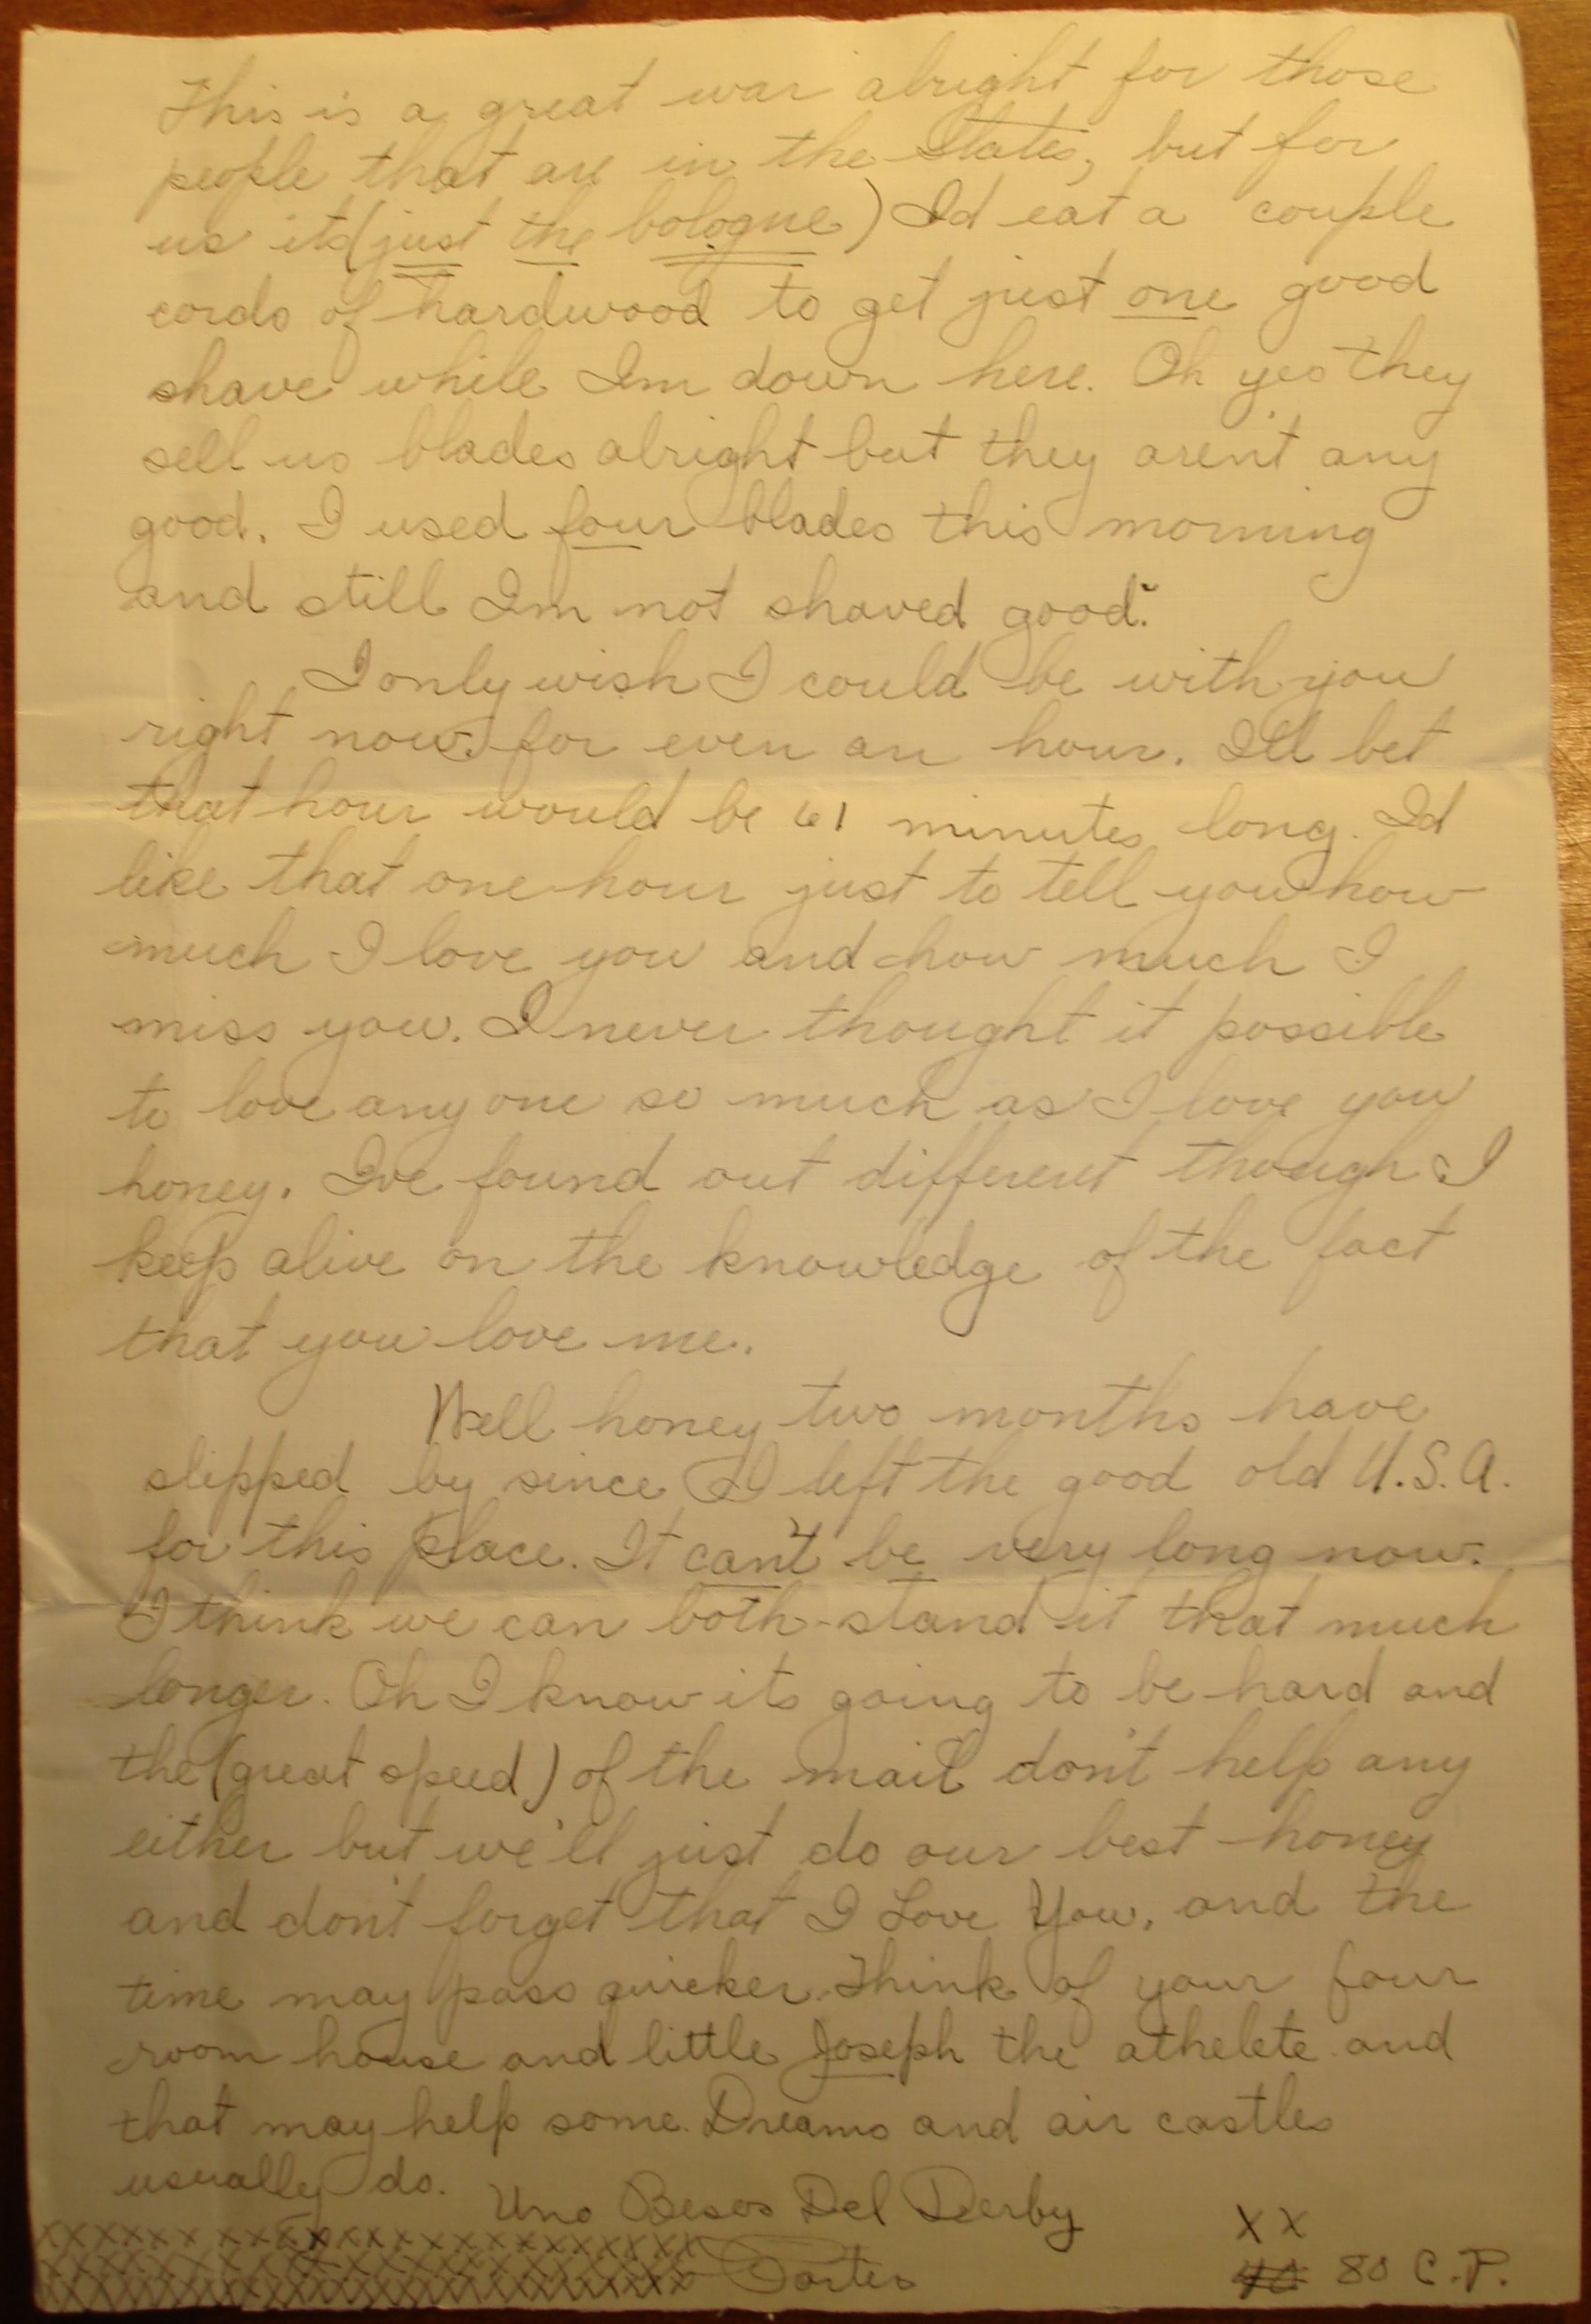 This is a great war alright for those
people that are in the States, but for
us its (just the bologne) Id eat a couple
cords of hardwood to get just one good
shave while Im down here. Oh yes they
sell us blades alright but they aren't any
good. I used four blades this morning
and still Im not shaved good.
I only wish I could be with you
right now for even an hour. Ill bet
that hour would be 61 minutes long. Id
like that one hour just to tell you how
much I love you and how much I
miss you. I never thought it possible
to love anyone so much as I love you
honey. Ive found out different though I
keep alive on the knowledge of the fact
that you love me.
Well honey two months have
slipped by since I left the good old U.S.A.
for this place. It can't be very long now.
I think we can both stand it that much
longer. Oh I know its going to be hard and
the (great speed) of the mail don't help any
either but we'll just do our best honey
and don't forget that I Love You, and the
time may pass quicker. Think of your four
room house and little Joseph the athelete and
that may help some. Dreams and air castles
usually do.
Uno Besos Del Derby
xxxxxxxxxxxxxxxxxxxxxxx
X X
80 C.P.